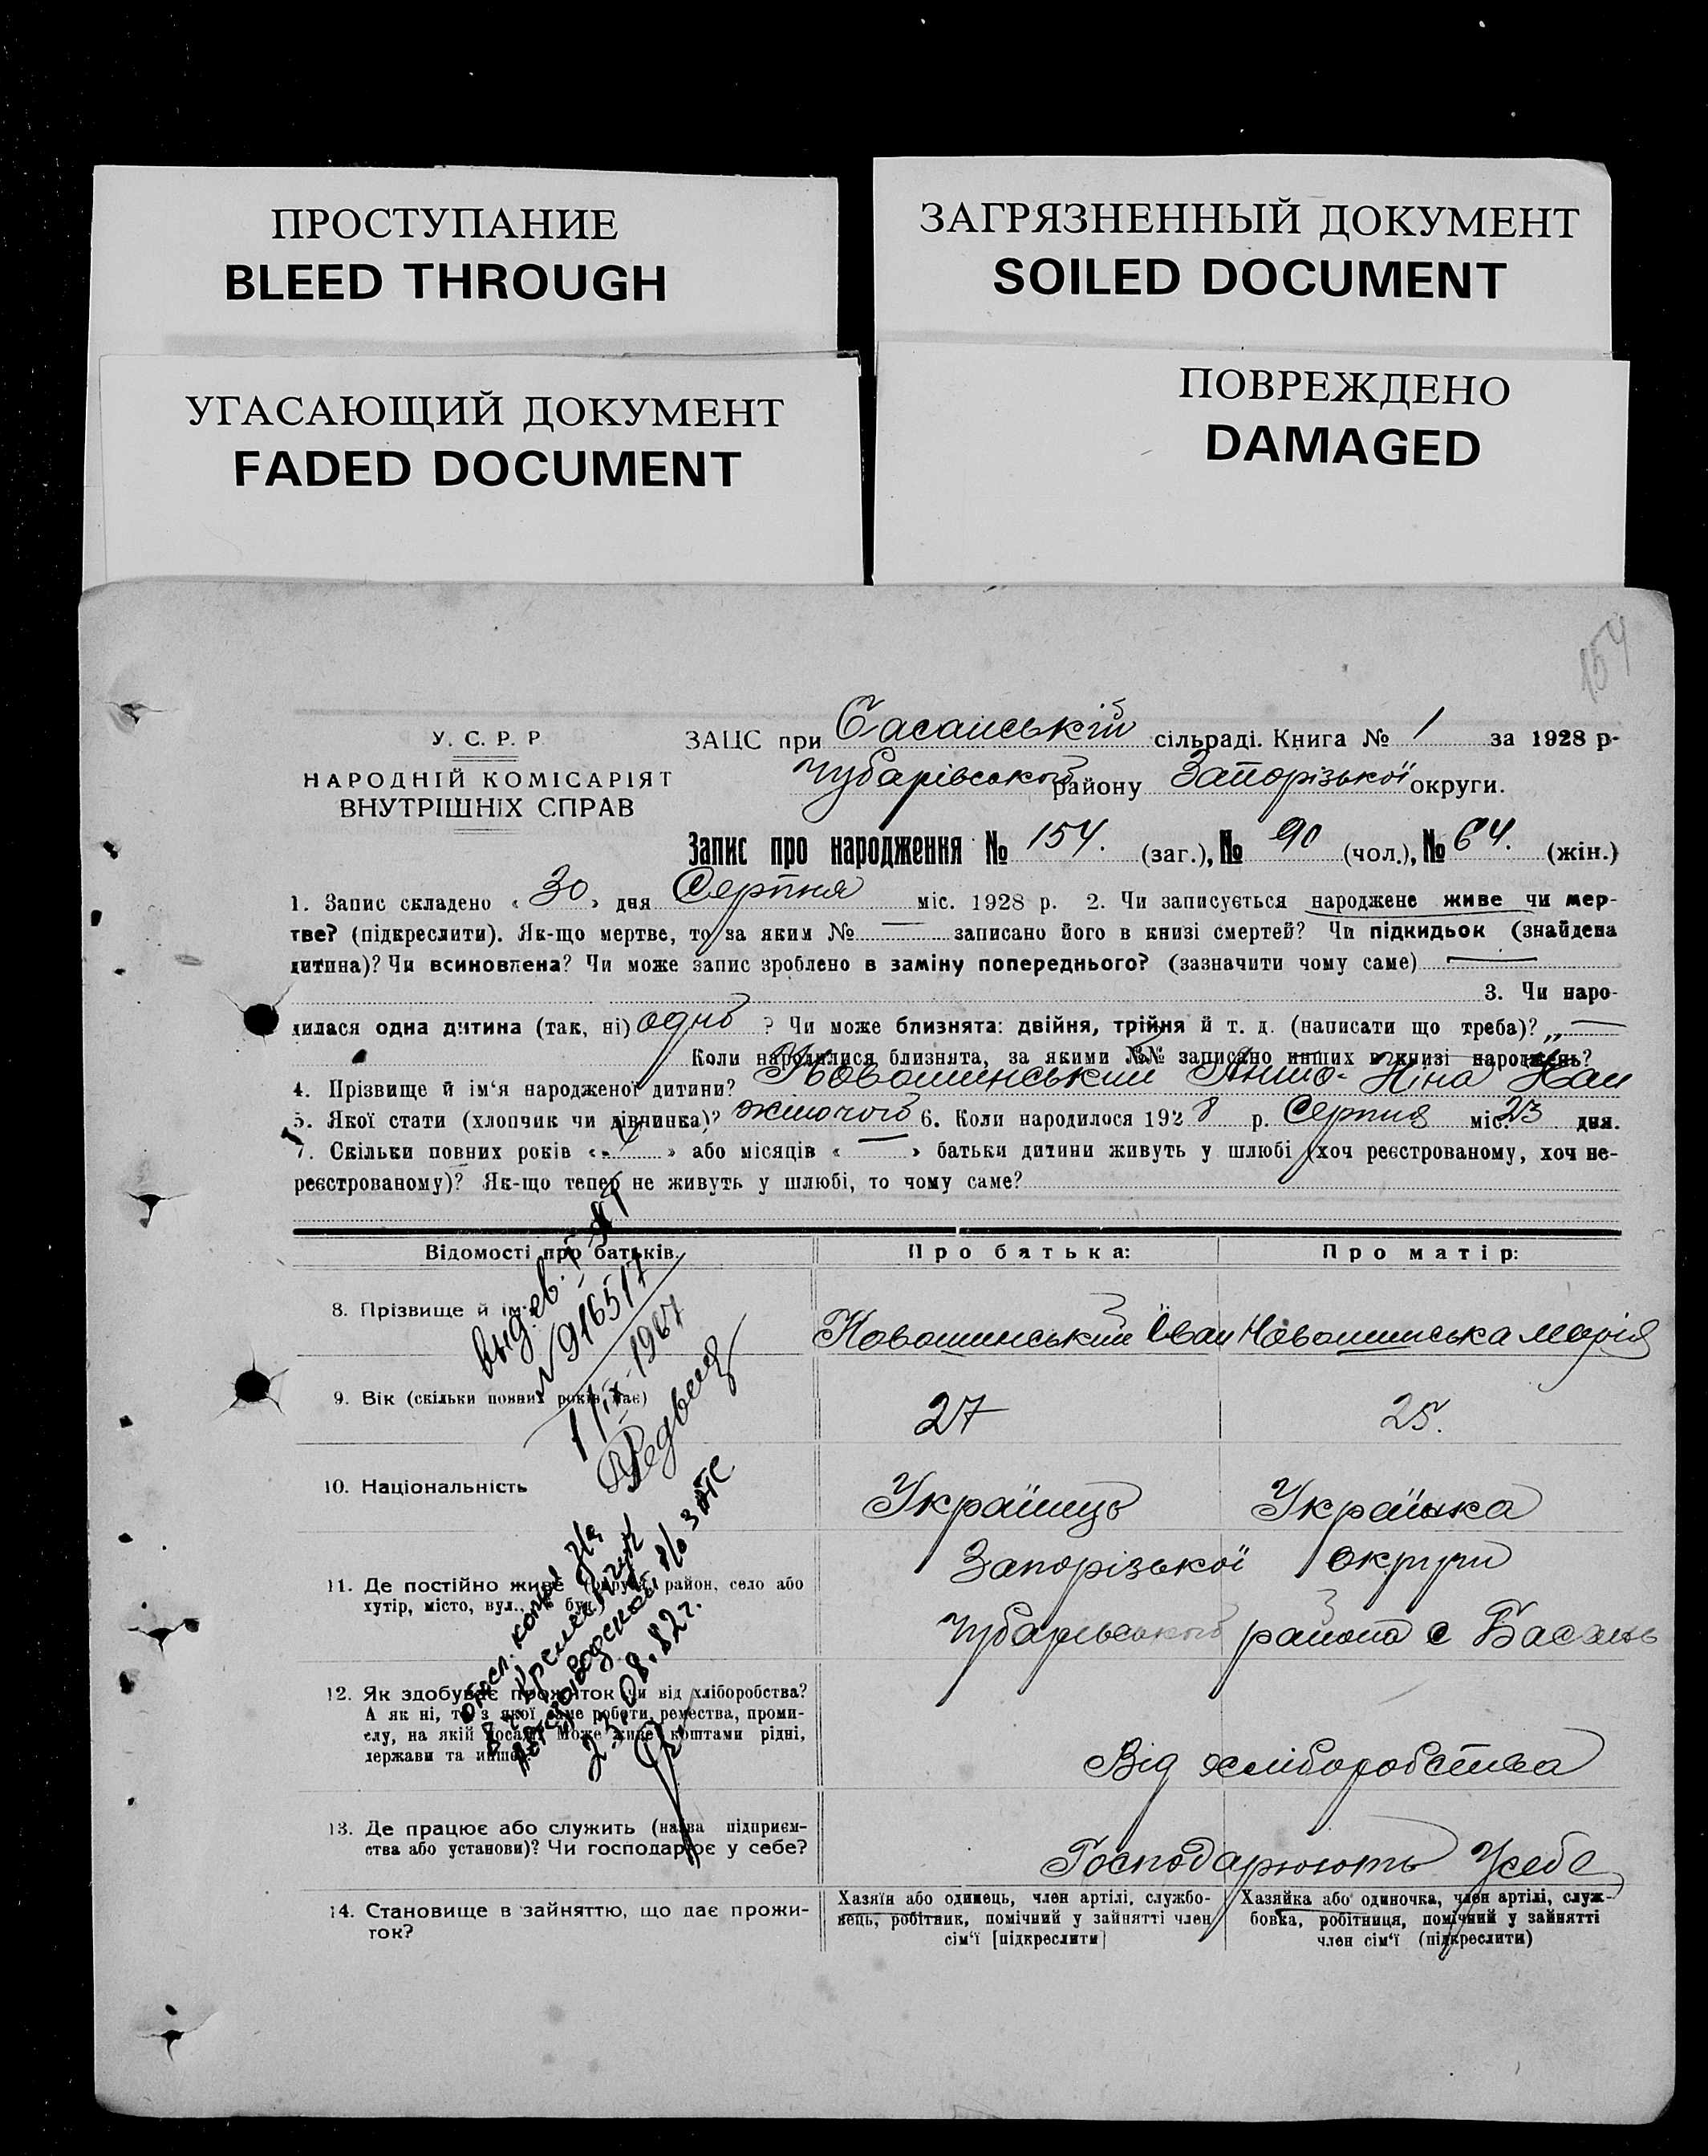 ПРОСТУПАНИЕ
BLEED THROUGH
ЗАГРЯЗНЕННЫЙ ДОКУМЕНТ
SOILED DOCUMENT
УГАСАЮЩИЙ ДОКУМЕНТ
FADED DOCUMENT
ПОВРЕЖДЕНО
DAMAGED
154
У. С. Р. Р
НАРОДНІЙ КОМІСАРІЯТ
ВНУТРІШНІХ СПРАВ
ЗАЦС при Басанській сільраді. Книга № 1 за 1928 р-
Чубарівського району Запорізької округи.
Запис про народження № 154. (заг.), № 90 (чол.), № 64. (жін.)
1. Запис складено « 30 » дня Серпня міс. 1928 р. 2. Чи записується народжене живе чи мер-
тве? (підкреслити). Як-що мертве, то за яким № — записано його в книзі смертей? Чи підкидьок (знайдена
дитина)? Чи всиновлена? Чи може запис зроблено в заміну попереднього? (зазначити чому саме) —
3. Чи наро-
дилася одна дитина (так, ні) одно ? Чи може близнята: двійня, трійня й т. д. (написати що треба)? „ —
Коли народилися близнята, за якими №№ записано инших в книзі народжень?
4. Прізвище й ім‘я народженої дитини? Ніна
5. Якої стати (хлопчик чи дівчинка)? жіночого 6. Коли народилося 1928 р. Серпня міс. 23 дня.
7. Скільки повних років « 4 » або місяців « — » батьки дитини живуть у шлюбі (хоч реєстрованому, хоч не-
реєстрованому)? Як-що тепер не живуть у шлюбі, то чому саме?
Відомості про батьків.
Про батька:
Про матір:
8. Прізвище й ім‘я
Новошинський Іван
Новошинська Марія
9. Вік (скільки повних років має)
27
25.
10. Національність
Українець
Українка
11. Де постійно живе (округа, район, село або
хутір, місто, вул., № буд.)
Запорізької округи
Чубарівського района с Басань
12. Як здобуває прожиток чи від хліборобства?
А як ні, то з якої саме роботи, ремества, проми-
слу, на якій посаді? Може живе коштами рідні,
держави та инше?
Від хліборобства
13. Де працює або служить (назва підприєм-
ства або установи)? Чи господарює у себе?
Господарюють Усебе
14. Становище в зайняттю, що дає прожи-
ток?
Хазяїн або одинець, член артілі, службо-
вець, робітник, помічний у зайнятті член
сім‘ї [підкреслити]
Хазяйка або одиночка, член артілі, служ-
бовка, робітниця, помічний у зайнятті
член сім‘ї (підкреслити)
выд. св.
№ 916517
1/IX-1967
23.08.82г.